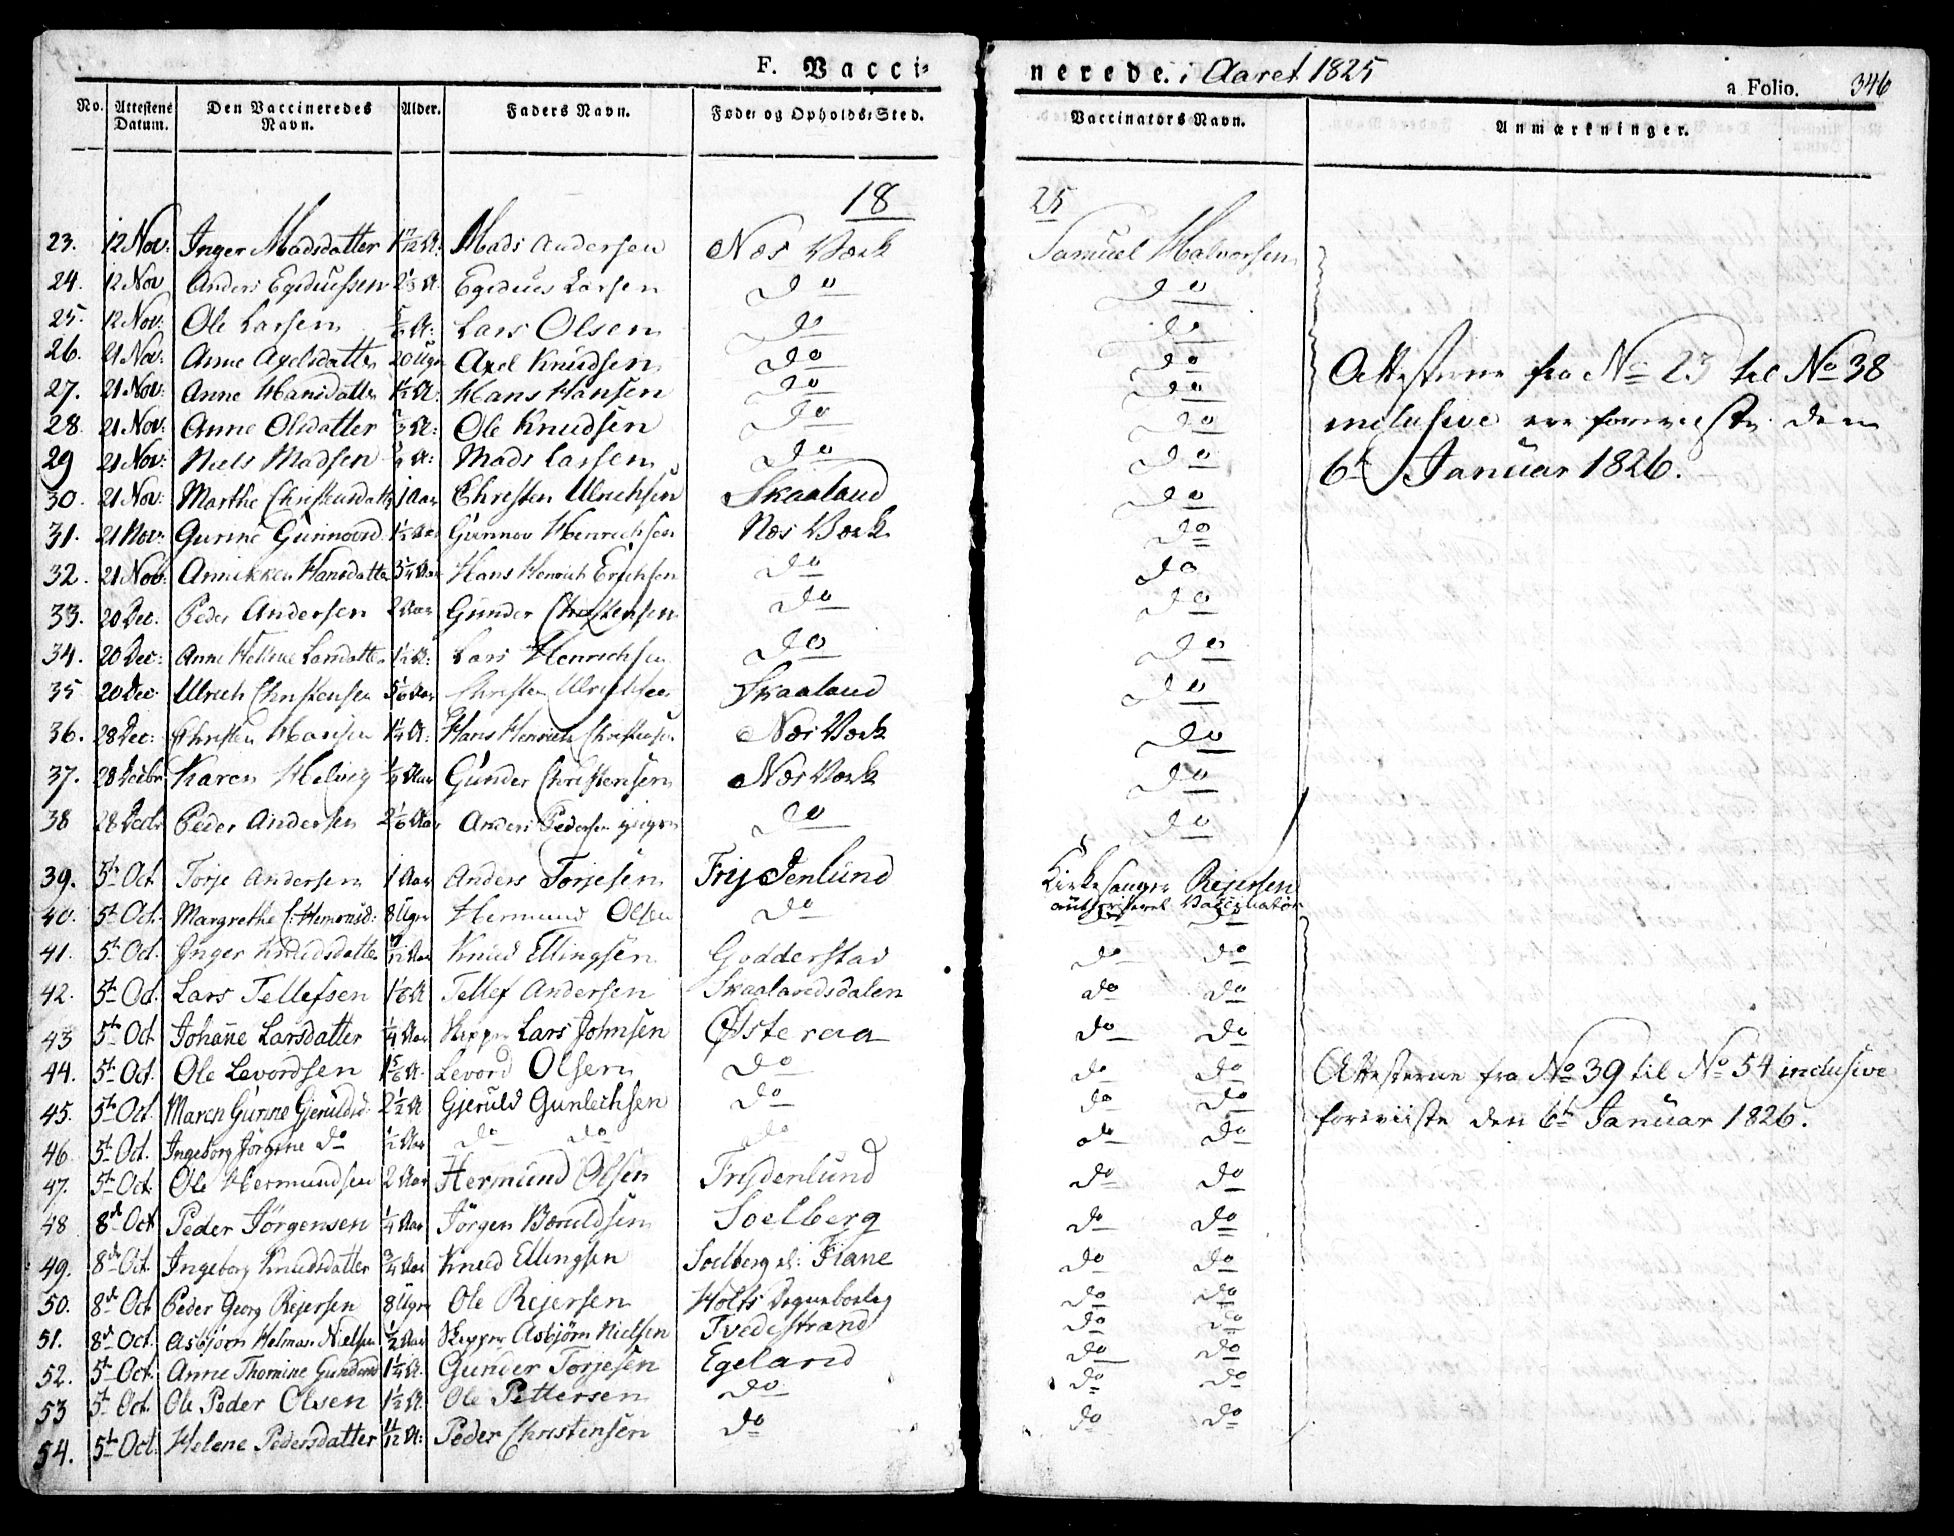 F. Vacci-
nerede i Aaret 1825
a Folio. 346
No. Attestens Datum. Den Vaccineredes Navn. Alder. Faders Navn. Føde- og Opholds-Sted. Vaccinators Navn. Anmærkninger.
18 25
23. 12 Nov: Inger Madsdatter Mads Andersen Næs Værk Samuel Halvorsen
24. 12 Nov Anders Egediussen Egedius Larsen do do
25. 12 Nov: Ole Larsen Lars Olsen do do
26. 21 Nov: Anne Axelsdatter 20 Uger Axel Knudsen do do
27. 21 Nov: Anne Hansdatter Hans Hansen do do
28. 21 Nov: Anne Olsdatter Ole Knudsen do do
29 21 Nov: Niels Madsen Mads Larsen do do
30. 21 Nov: Marthe Christensdatter 1 Aar Christen Ulrichsen Skaaland do
31. 21 Nov: Gurine Gunnovsd. Gunnov Henrichsen Næs Værk do
32. 21 Nov: Annikken Hansdatter Hans Henrich Erichsen do do
33. 20 Dec: Peder Andersen 2 Aar Gunder Christensen do do
34. 20 Dec: Anne Helene Larsdatter Lars Henrichsen do do
35 20 Dec Ulrich Christensen Christen Ulrichsen Skaaland do
36. 28 Dec: Christen Hansen 1¼ A: Hans Henrich Christensen Næs Værk do
37. 28 Decbr Karen Helvig Gunder Christensen Næs Værk do
38 28 Decbr Peder Andersen 2 1/6 Aar Anders Pedersen do do
Attesterne fra No 23 til No 38
inclusive ere foreviiste den
6te Januar 1826.
39. 5te Oct Torje Andersen 1 Aar Anders Torjesen Frydenlund Kirkesanger Rejersen
authoriseret Vaccinatør
40. 5te Oct. Margrethe C: Hermunsd: 8 Uger Hermund Olsen do do do
41. 5te Oct. Inger Knudsdatter Knud Ellingsen Godderstad do do
42. 5te Oct. Lars Tellefsen 1 1/6 A Tellef Andersen Skaalandsdalen do do
43 5te Oct Johanne Larsdatter ¼ Aar Skipper Lars Johnsen Østeraa do do
44. 5te Oct. Ole Levordsen 1 5/6 A. Levord Olsen do do do
45. 5te Oct. Maren Gunne Gjeruldsd: 2½ A Gjeruld Gunlechsen do do do
46. 5te Oct. Ingeborg Jørgine do ½ Aar do do do do do
47. 5te Oct. Ole Hermundsen 2 Aar Hermund Olsen Frydenlund do do
48 8de Oct Peder Jørgensen ¼ Aar Jørgen Bæruldsen Soelberg do do
49. 8de Oct. Ingeborg Knudsdatter ¾ Aar Knud Ellingsen Soelberg el: Fiane do do
50. 8de Oct Peder Georg Rejersen 8 Uger Ole Rejersen Holts Degnebolig do do
51. 8de Oct. Asbjørn Helman Nielsen ½ Aar Skipper Asbjørn Nielsen Tvedestrand do do
52. 5te Oct. Anne Thomine Gundersd Gunder Torjesen Egeland do do
53 5te Oct. Ole Peder Olsen 1½ A. Ole Pettersen do do do
54. 5te Oct: Helene Pedersdatter 11/12 A: Peder Christensen do do do
Attesterne fra No 39 til No 54 inclusive
foreviiste den 6te Januar 1826.